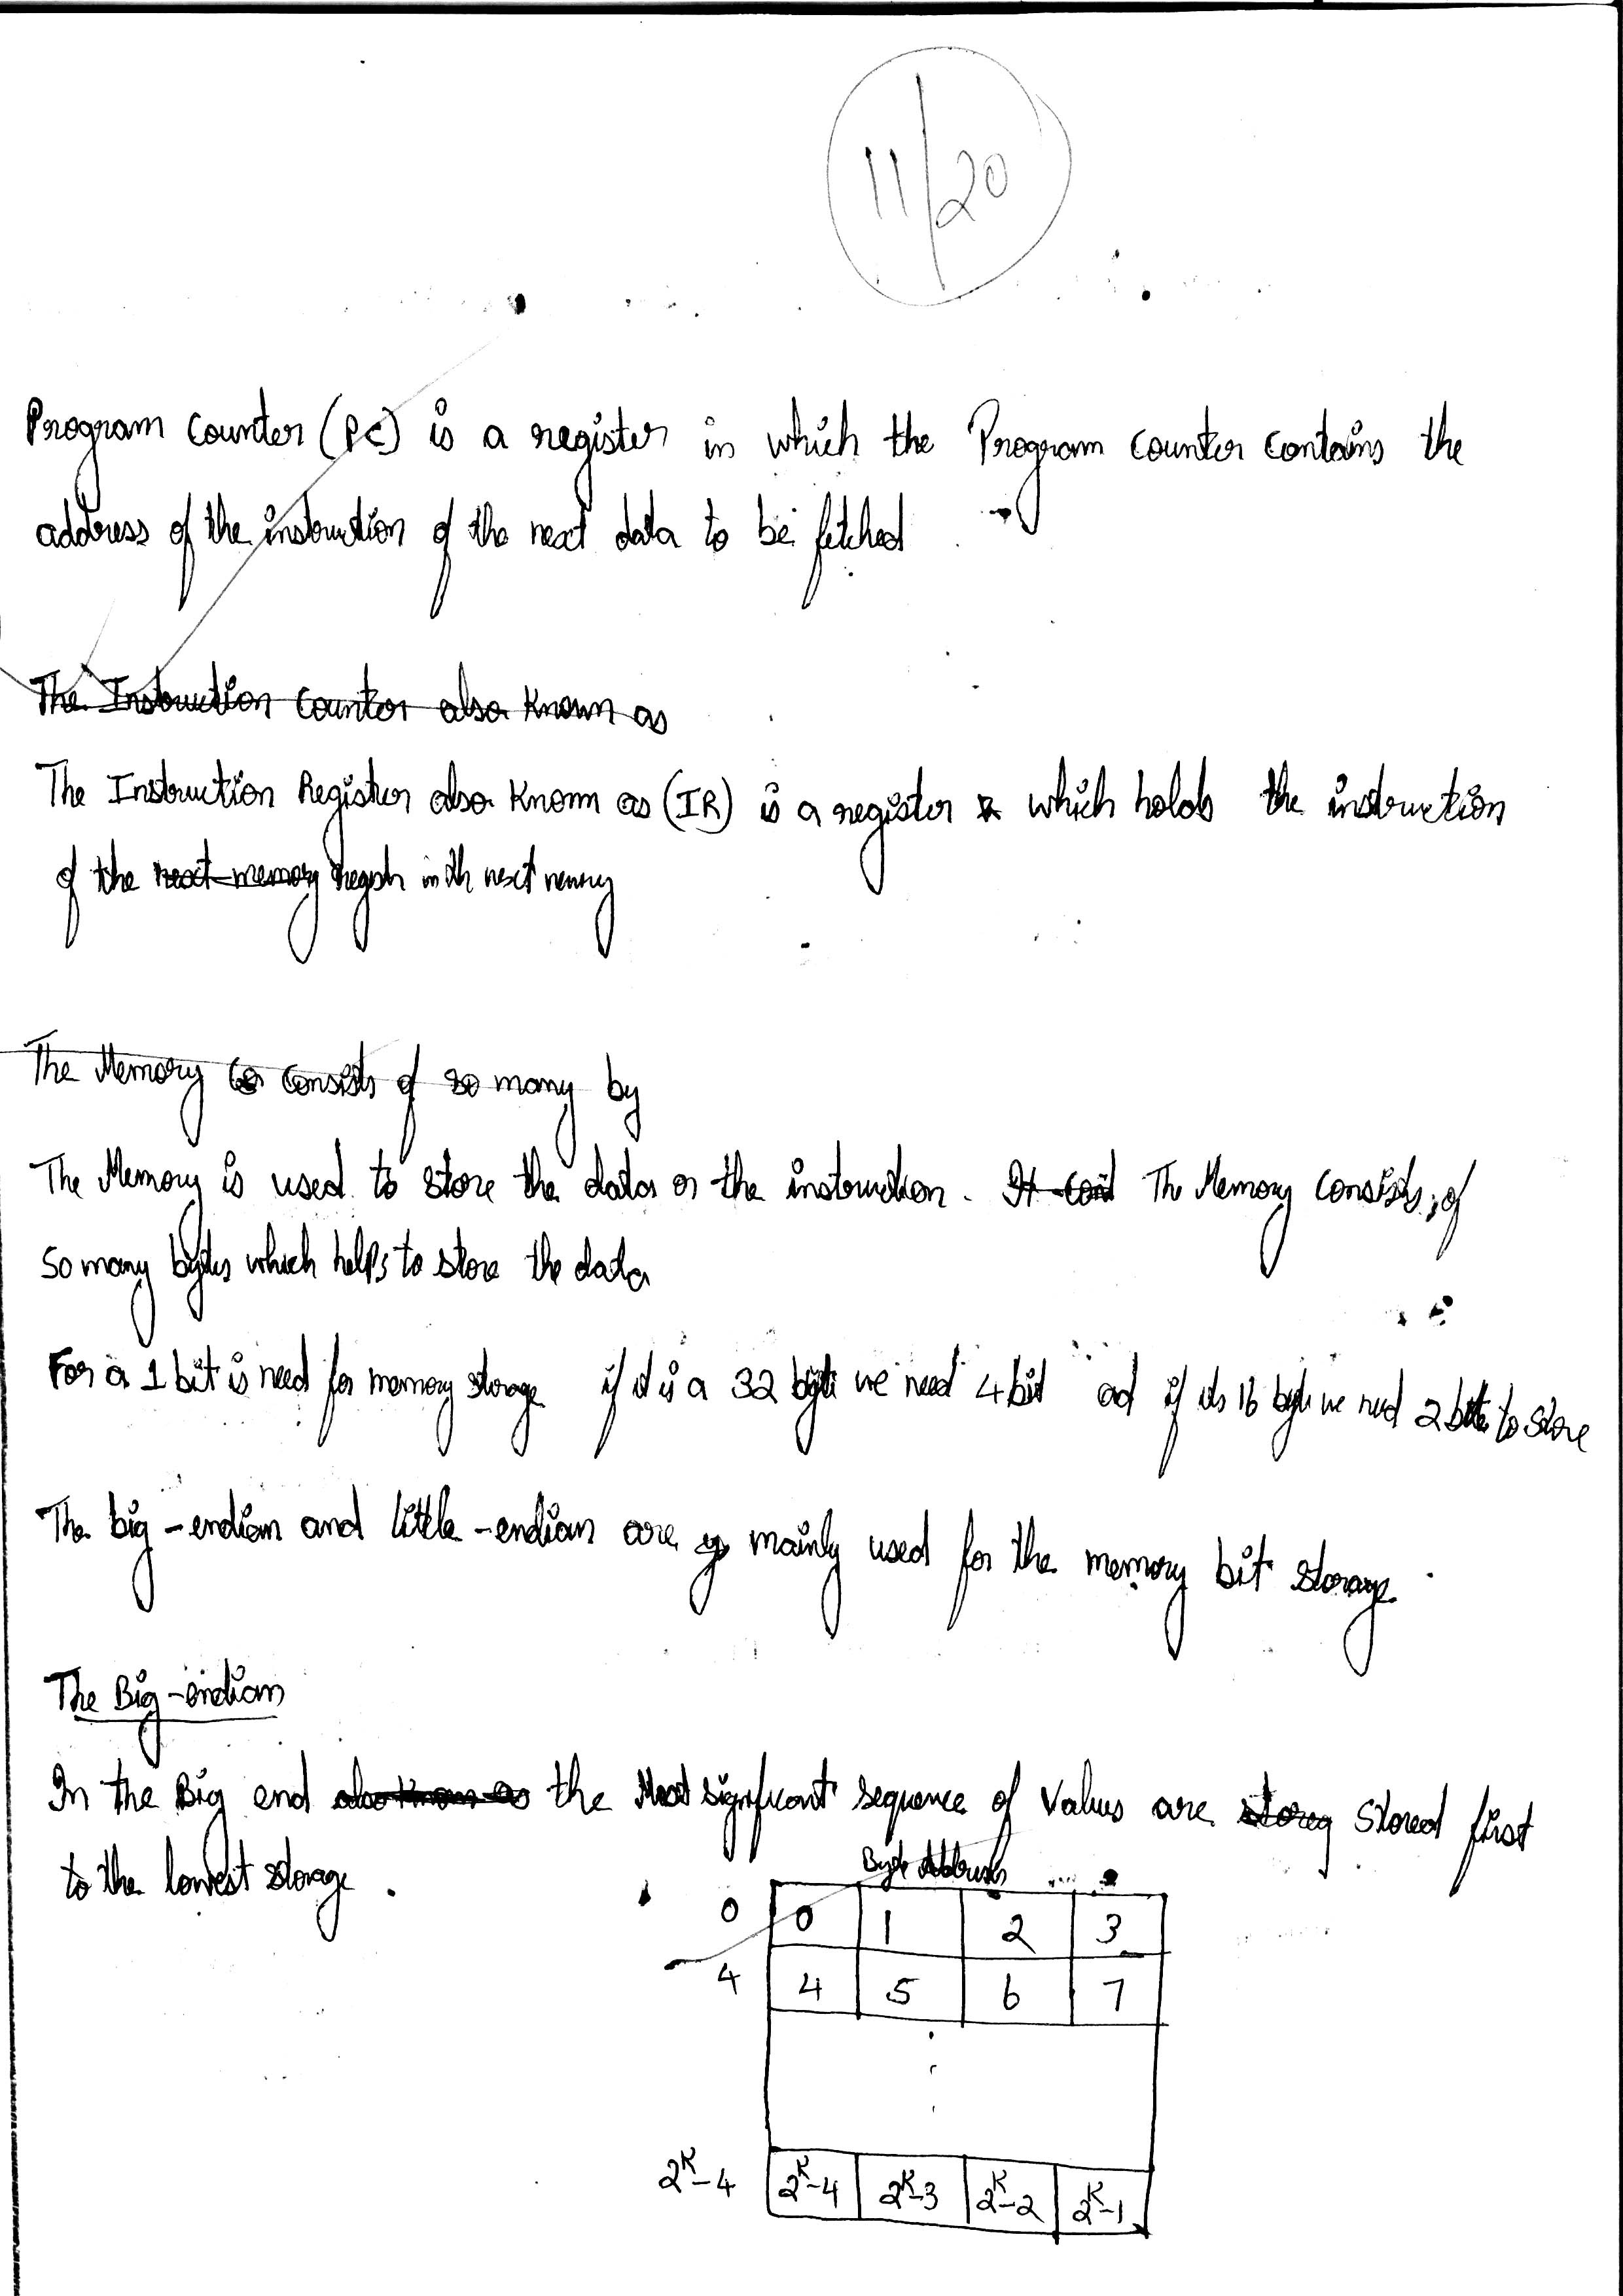 11/20
Program Counter (PC) is a register in which the Program Counter contains the
address of the instruction of the next data to be fetched
The Instruction Counter also Known as
The Instruction Register also Known as (IR) is a register which holds the instruction
of the next memory in th next
The Memory Co consists of so many by
The Memory is used to store the data or the instruction. It The Memory Consists of
So many bytes which helps to store the data
For a 1 bit is need for memory storage if it is a 32 byte we need 4 bit ad if its 16 byte we need 2 to store
The big-endian and little-endian are mainly used for the memory bit storage.
The Big-endian
In the Big end also known as the Most significant sequence of values are storeg Stored first
to the lowest storage.
Byte Address
0 0 1 2 3
4 4 5 6 7
2^K-4 2^K-4 2^K-3 2^K-2 2^K-1